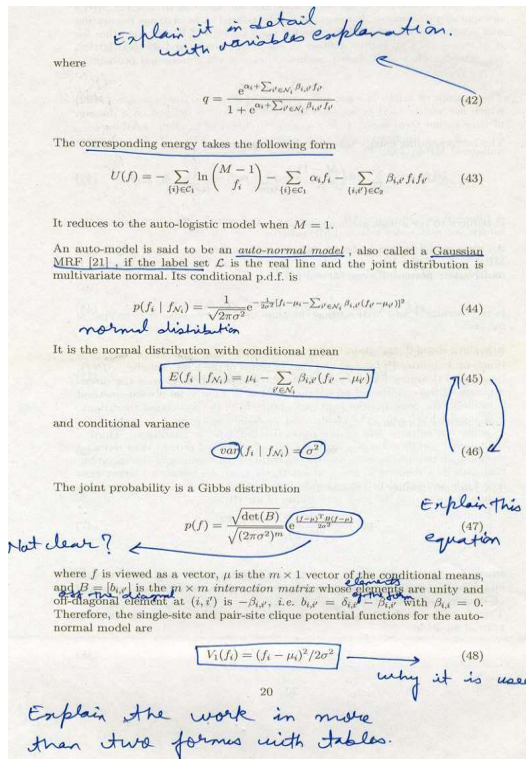 Explain it in detail
with variables explanation.
where
q = e^{α_i+∑_{i'∈N_i} β_{i,i'} f_{i'}} / 1 + e^{α_i+∑_{i'∈N_i} β_{i,i'} f_{i'}} (42)
The corresponding energy takes the following form
U(f) = − ∑_{{i}∈C_1} ln (M − 1 / f_i) − ∑_{{i}∈C_1} α_i f_i − ∑_{{i,i'}∈C_2} β_{i,i'} f_i f_{i'} (43)
It reduces to the auto-logistic model when M = 1.
An auto-model is said to be an auto-normal model , also called a Gaussian
MRF [21] , if the label set L is the real line and the joint distribution is
multivariate normal. Its conditional p.d.f. is
p(f_i | f_{N_i}) = 1/√(2πσ²) e^{−1/(2σ²) [f_i−μ_i−∑_{i'∈N_i} β_{i,i'}(f_{i'}−μ_{i'})]²} (44)
normal distribution
It is the normal distribution with conditional mean
E(f_i | f_{N_i}) = μ_i − ∑_{i'∈N_i} β_{i,i'}(f_{i'} − μ_{i'}) (45)
and conditional variance
var(f_i | f_{N_i}) = σ² (46)
The joint probability is a Gibbs distribution
Explain this
p(f) = √det(B) / √(2πσ²)^m e^{(f−μ)^T B(f−μ) / 2σ²} (47)
equation
Not clear?
where f is viewed as a vector, μ is the m × 1 vector of the conditional means,
elements
and B = [b_{i,i'}] is the m × m interaction matrix whose elements are unity and
the diagonal of the form
off-diagonal element at (i, i') is −β_{i,i'}, i.e. b_{i,i'} = δ_{i,i'} − β_{i,i'} with β_{i,i} = 0.
Therefore, the single-site and pair-site clique potential functions for the auto-
normal model are
V_1(f_i) = (f_i − μ_i)²/2σ² (48)
why it is use
20
Explain the work in more
than two forms with tables.